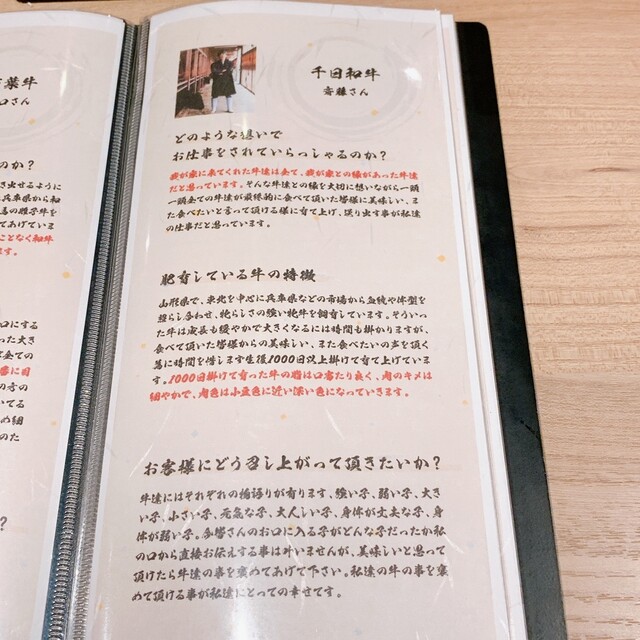 千日和牛
斎藤さん
どのような想いで
お仕事をされていらっしゃるのか？
我が家に来てくれた牛達は全て、我が家との縁があった牛達
だと思っています。そんな牛達との縁を大切に想いながら一頭
一頭全ての牛達が最終的に食べて頂いた皆様に美味しい、ま
た食べたいと言って頂ける様に育て上げ、送り出す事が私達
の仕事だと思っています。
肥育している牛の特徴
山形県で、東北を中心に兵庫県などの市場から血統や体型を
照らし合わせ、牝らしさの強い牝牛を飼育しています。そういっ
た牛は成長も緩やかで大きくなるには時間も掛かりますが、
食べて頂いた皆様からの美味しい、また食べたいの声を頂く
為に時間を惜しまず生後1000日以上掛けて育て上げていま
す。1000日掛けて育った牛の脂は口当たり良く、肉のキメは
細やかで、肉色は小豆色に近い深い色になっていきます。
お客様にどう召し上がって頂きたいか？
牛達にはそれぞれの物語りが有ります、強い子、弱い子、大き
い子、小さい子、元気な子、大人しい子、身体が丈夫な子、身
体が弱い子。多皆さんのお口に入る子がどんな子だったか私
の口から直接お伝えする事は叶いませんが、美味しいと思って
頂けたら牛達の事を褒めてあげて下さい。私達の牛の事を褒
めて頂ける事が私達にとっての幸せです。
葉牛
口さん
のか？
き出せるように
は兵庫県から和
馬の雌子牛を
てあげていま
ことなく和牛
す。
口にする
った大き
て全ての
番に目
の子の
いてる
め細
のた
？